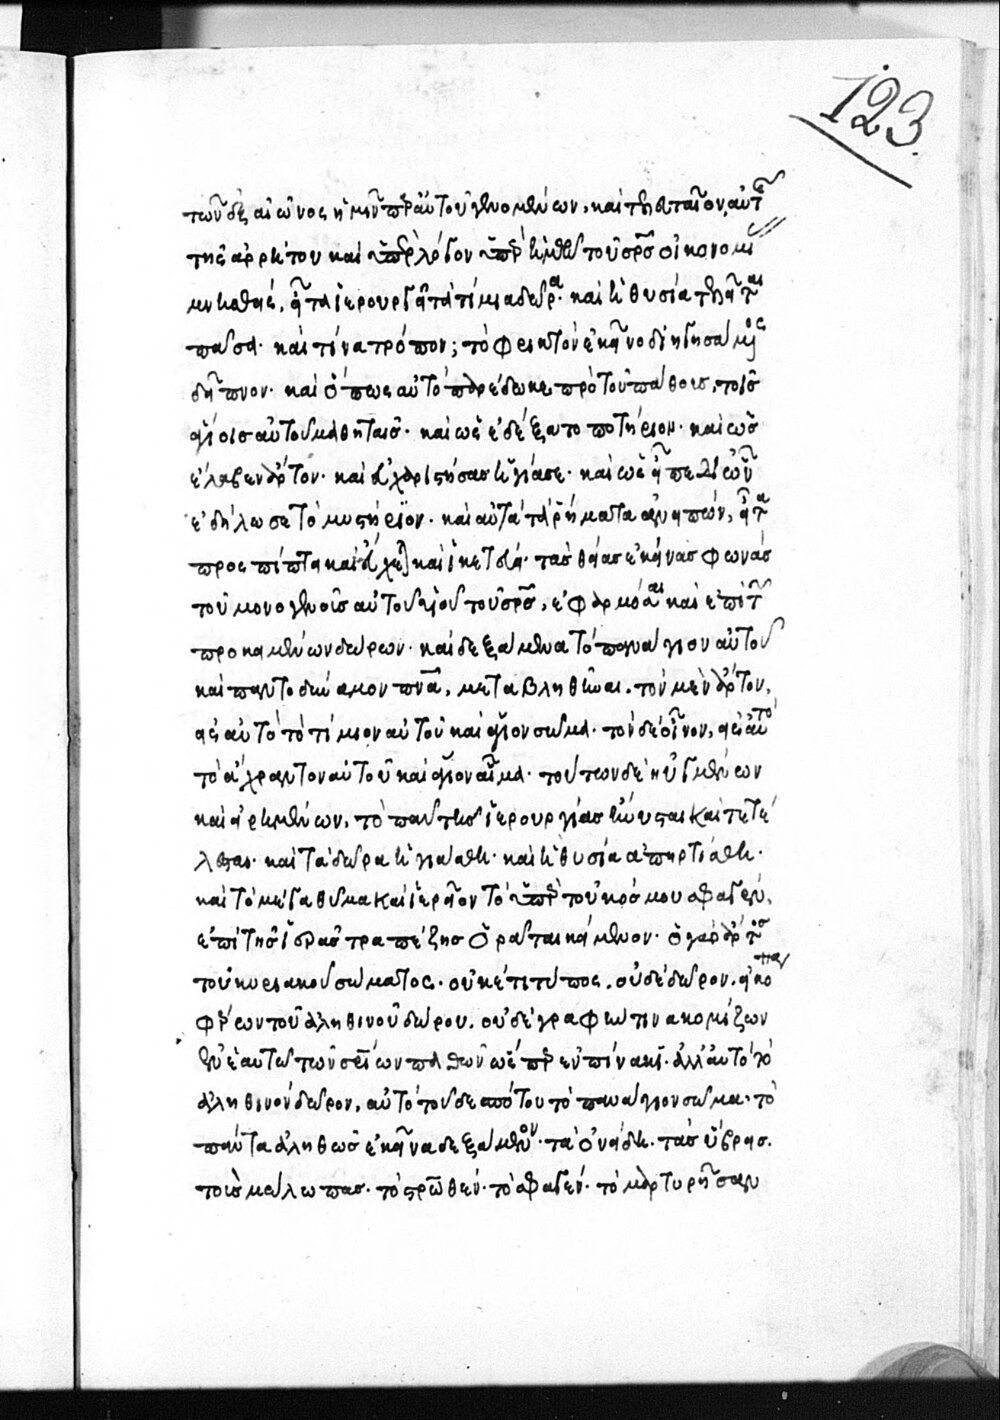 τῶν ἐξ αἰῶνος ἡμῖν παρ' αὐτοῦ γενομένων, καὶ τελευταῖον, αὐτῆς
τῆς ἀρρήτου καὶ ὑπὲρ λόγον ὑπὲρ ἡμῶν τοῦ σρς οἰκονομί
μνησθείς, εἶτα ἱερουργεῖ τὰ τίμια δῶρα· καὶ ἡ θυσία τελεῖται
πᾶσα· καὶ τίνα τρόπον; τὸ φρικτὸν ἐκεῖνο διηγησάμενος
δεῖπνον· καὶ ὅπως αὐτὸ παρέδωκε πρὸ τοῦ πάθους, τοῖς
ἁγίοις αὐτοῦ μαθηταῖς· καὶ ὡς ἐδέξατο ποτήριον· καὶ ὡς
ἔλαβεν ἄρτον· καὶ εὐχαριστήσας ἡγίασε· καὶ ὡς εἶπε δι' ὧν
ἐδήλωσε τὸ μυστήριον· καὶ αὐτὰ τὰ ῥήματα ἀνειπών, εἶτα
προσπίπτει καὶ εὔχεται καὶ ἱκετεύει· τὰς θείας ἐκείνας φωνὰς
τοῦ μονογενοῦς αὐτοῦ υἱοῦ τοῦ σρς, ἐφαρμόσαι καὶ ἐπὶ τῶν
προκειμένων δώρων· καὶ δεξάμενα τὸ πανάγιον αὐτοῦ
καὶ παντοδύναμον πνα, μεταβληθῆναι· τὸν μὲν ἄρτον,
εἰς αὐτὸ τὸ τίμιον αὐτοῦ καὶ ἅγιον σῶμα· τὸν δὲ οἶνον, εἰς αὐτὸ
τὸ ἄχραντον αὐτοῦ καὶ ἅγιον αἷμα· τούτων δὲ ηὐγμένων
καὶ εἰρημένων, τὸ πᾶν τῆς ἱερουργίας ἤνυσται καὶ τετέ
λεσται· καὶ τὰ δῶρα ἡγιάσθη· καὶ ἡ θυσία ἀπηρτίσθη·
καὶ τὸ μέγα θῦμα καὶ ἱερεῖον τὸ ὑπὲρ τοῦ κόσμου σφαγέν,
ἐπὶ τῆς ἱερᾶς τραπέζης ὁρᾶται κείμενον· ὁ γὰρ ἄρτος
τοῦ κυριακοῦ σώματος· οὐκέτι τύπος· οὐδὲ δῶρον· εἰκόνα
φέρων τοῦ ἀληθινοῦ δώρου· οὐδὲ γραφήν τινα κομίζων
ἐν ἑαυτῷ τῶν σρίων παθῶν ὥσπερ ἐν πίνακι· ἀλλ' αὐτὸ τὸ
ἀληθινὸν δῶρον, αὐτὸ τοῦ δεσπότου τὸ πανάγιον σῶμα· τὸ
πάντα ἀληθῶς ἐκεῖνα δεξάμενον· τὰ ὀνείδη· τὰς ὕβρεις·
τοὺς μώλωπας· τὸ στρωθέν· τὸ σφαγέν· τὸ μαρτυρῆσαν